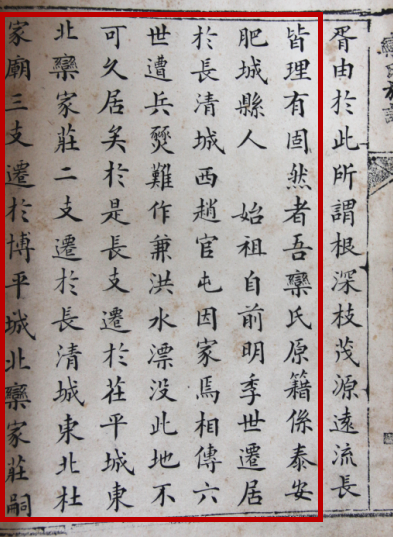 胥由於此所謂根深枝茂源遠流長
皆理有固然者吾欒氏原籍係泰安
肥城縣人 始祖自前明季世遷居
於長清城西趙官屯因家焉相傳六
世遭兵燹難作兼洪水漂没此地不
可久居矣於是長支遷於茌平城東
北欒家莊二支遷於長清城東北杜
家廟三支遷於博平城北欒家莊嗣